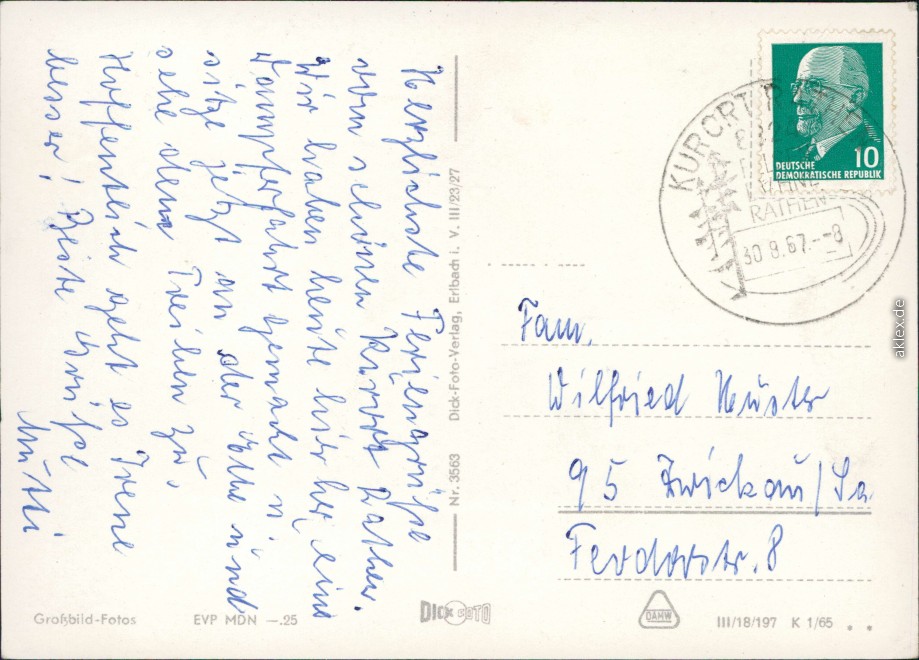 Herzlichste Feriengrüße
vom schönen Kurort Rathen.
Wir haben heute hierher eine
Dampferfahrt gemacht u.
sitze jetzt an der Elbe und
sehe dem Treiben zu.
Hoffentlich geht es Irene
besser! Beste Grüße
Mutti
Nr. 3563 Dick-Foto-Verlag, Erlbach i. V. III/23/27
DEUTSCHE
DEMOKRATISCHE REPUBLIK
10
KURORT
RATHEN
30.8.67.--8
Fam.
Wilfried Muster
95 Zwickau/Sa
Feodorstr. 8
Großbild-Fotos EVP MDN —.25
DICK FOTO
DAMW
III/18/197 K 1/65
aklex.de